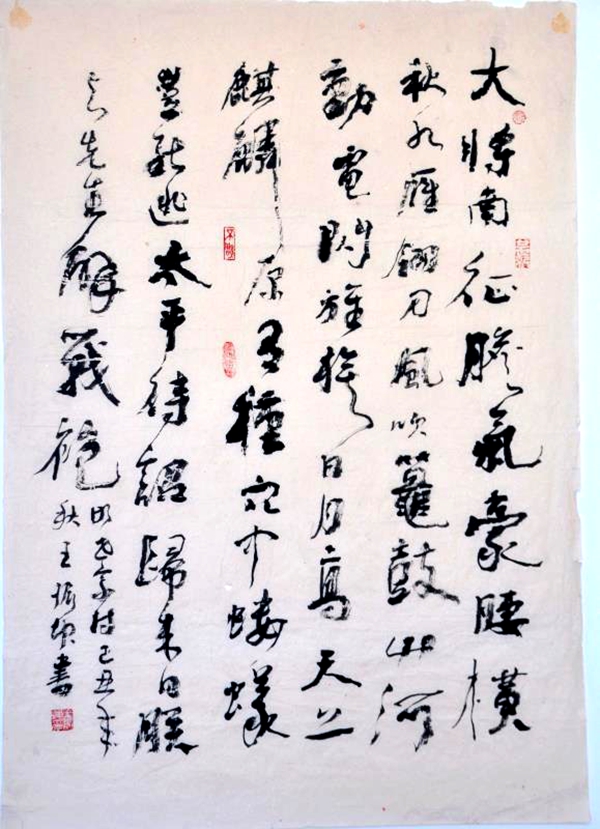 大將南征膽氣豪腰橫
秋水雁翎刀風吹鼉鼓山河
動電閃旌旗日月高天上
麒麟原有種穴中螻蟻
豈能逃太平待詔歸來日朕
与先生解戰袍
明世宗詩己丑年
秋王振書